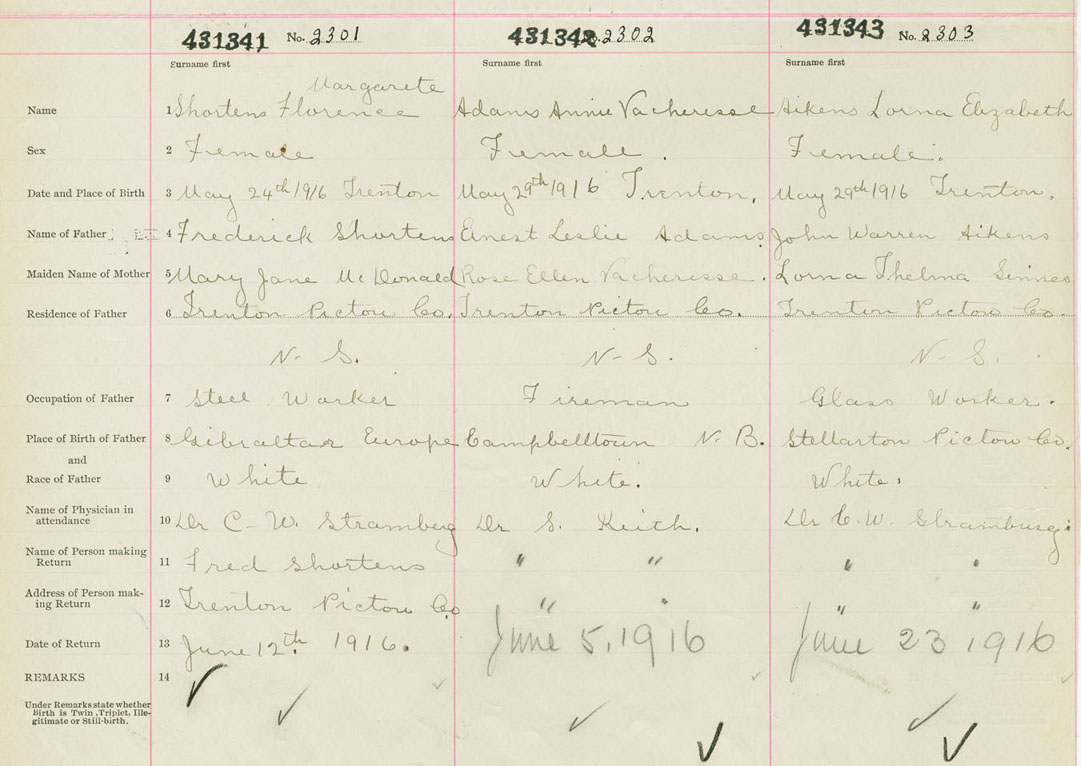 431341 No. 2301 431342 2302 431343 No. 2303
Surname first Surname first Surname first
Margarete
Name 1 Shortens Florence Adams Annie Vacheresse Aikens Lorna Elizabeth
Sex 2 Female Female. Female.
Date and Place of Birth 3 May 24th 1916 Trenton May 29th 1916 Trenton, May 29th 1916 Trenton,
Name of Father 4 Frederick Shortens Ernest Leslie Adams John Warren Aikens
Maiden Name of Mother 5 Mary Jane McDonald Rose Ellen Vacheresse. Lorna Thelma
Residence of Father 6 Trenton Pictou Co. Trenton Pictou Co. Trenton Pictou Co.
N. S. N. S. N. S.
Occupation of Father 7 Steel Worker Fireman Glass Worker.
Place of Birth of Father 8 Gibraltar Europe Campbelltown N. B. Stellarton Pictou Co.
and
Race of Father 9 White White. White.
Name of Physician in
attendance 10 Dr C. W. Stramberg Dr S. Keith. Dr C. W. Stramburg
Name of Person making
Return 11 Fred Shortens " " " "
Address of Person mak-
ing Return 12 Trenton Pictou Co " " " "
Date of Return 13 June 12th. 1916. June 5, 1916 June 23 1916
REMARKS 14
Under Remarks state whether
Birth is Twin, Triplet, Ille-
gitimate or Still-birth.